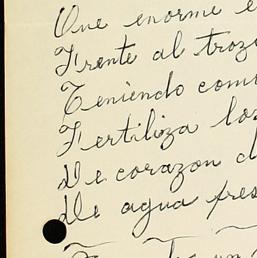 Que enorme e
Frente al troz
Teniendo com
Fertiliza los
De corazon d
De agua fres